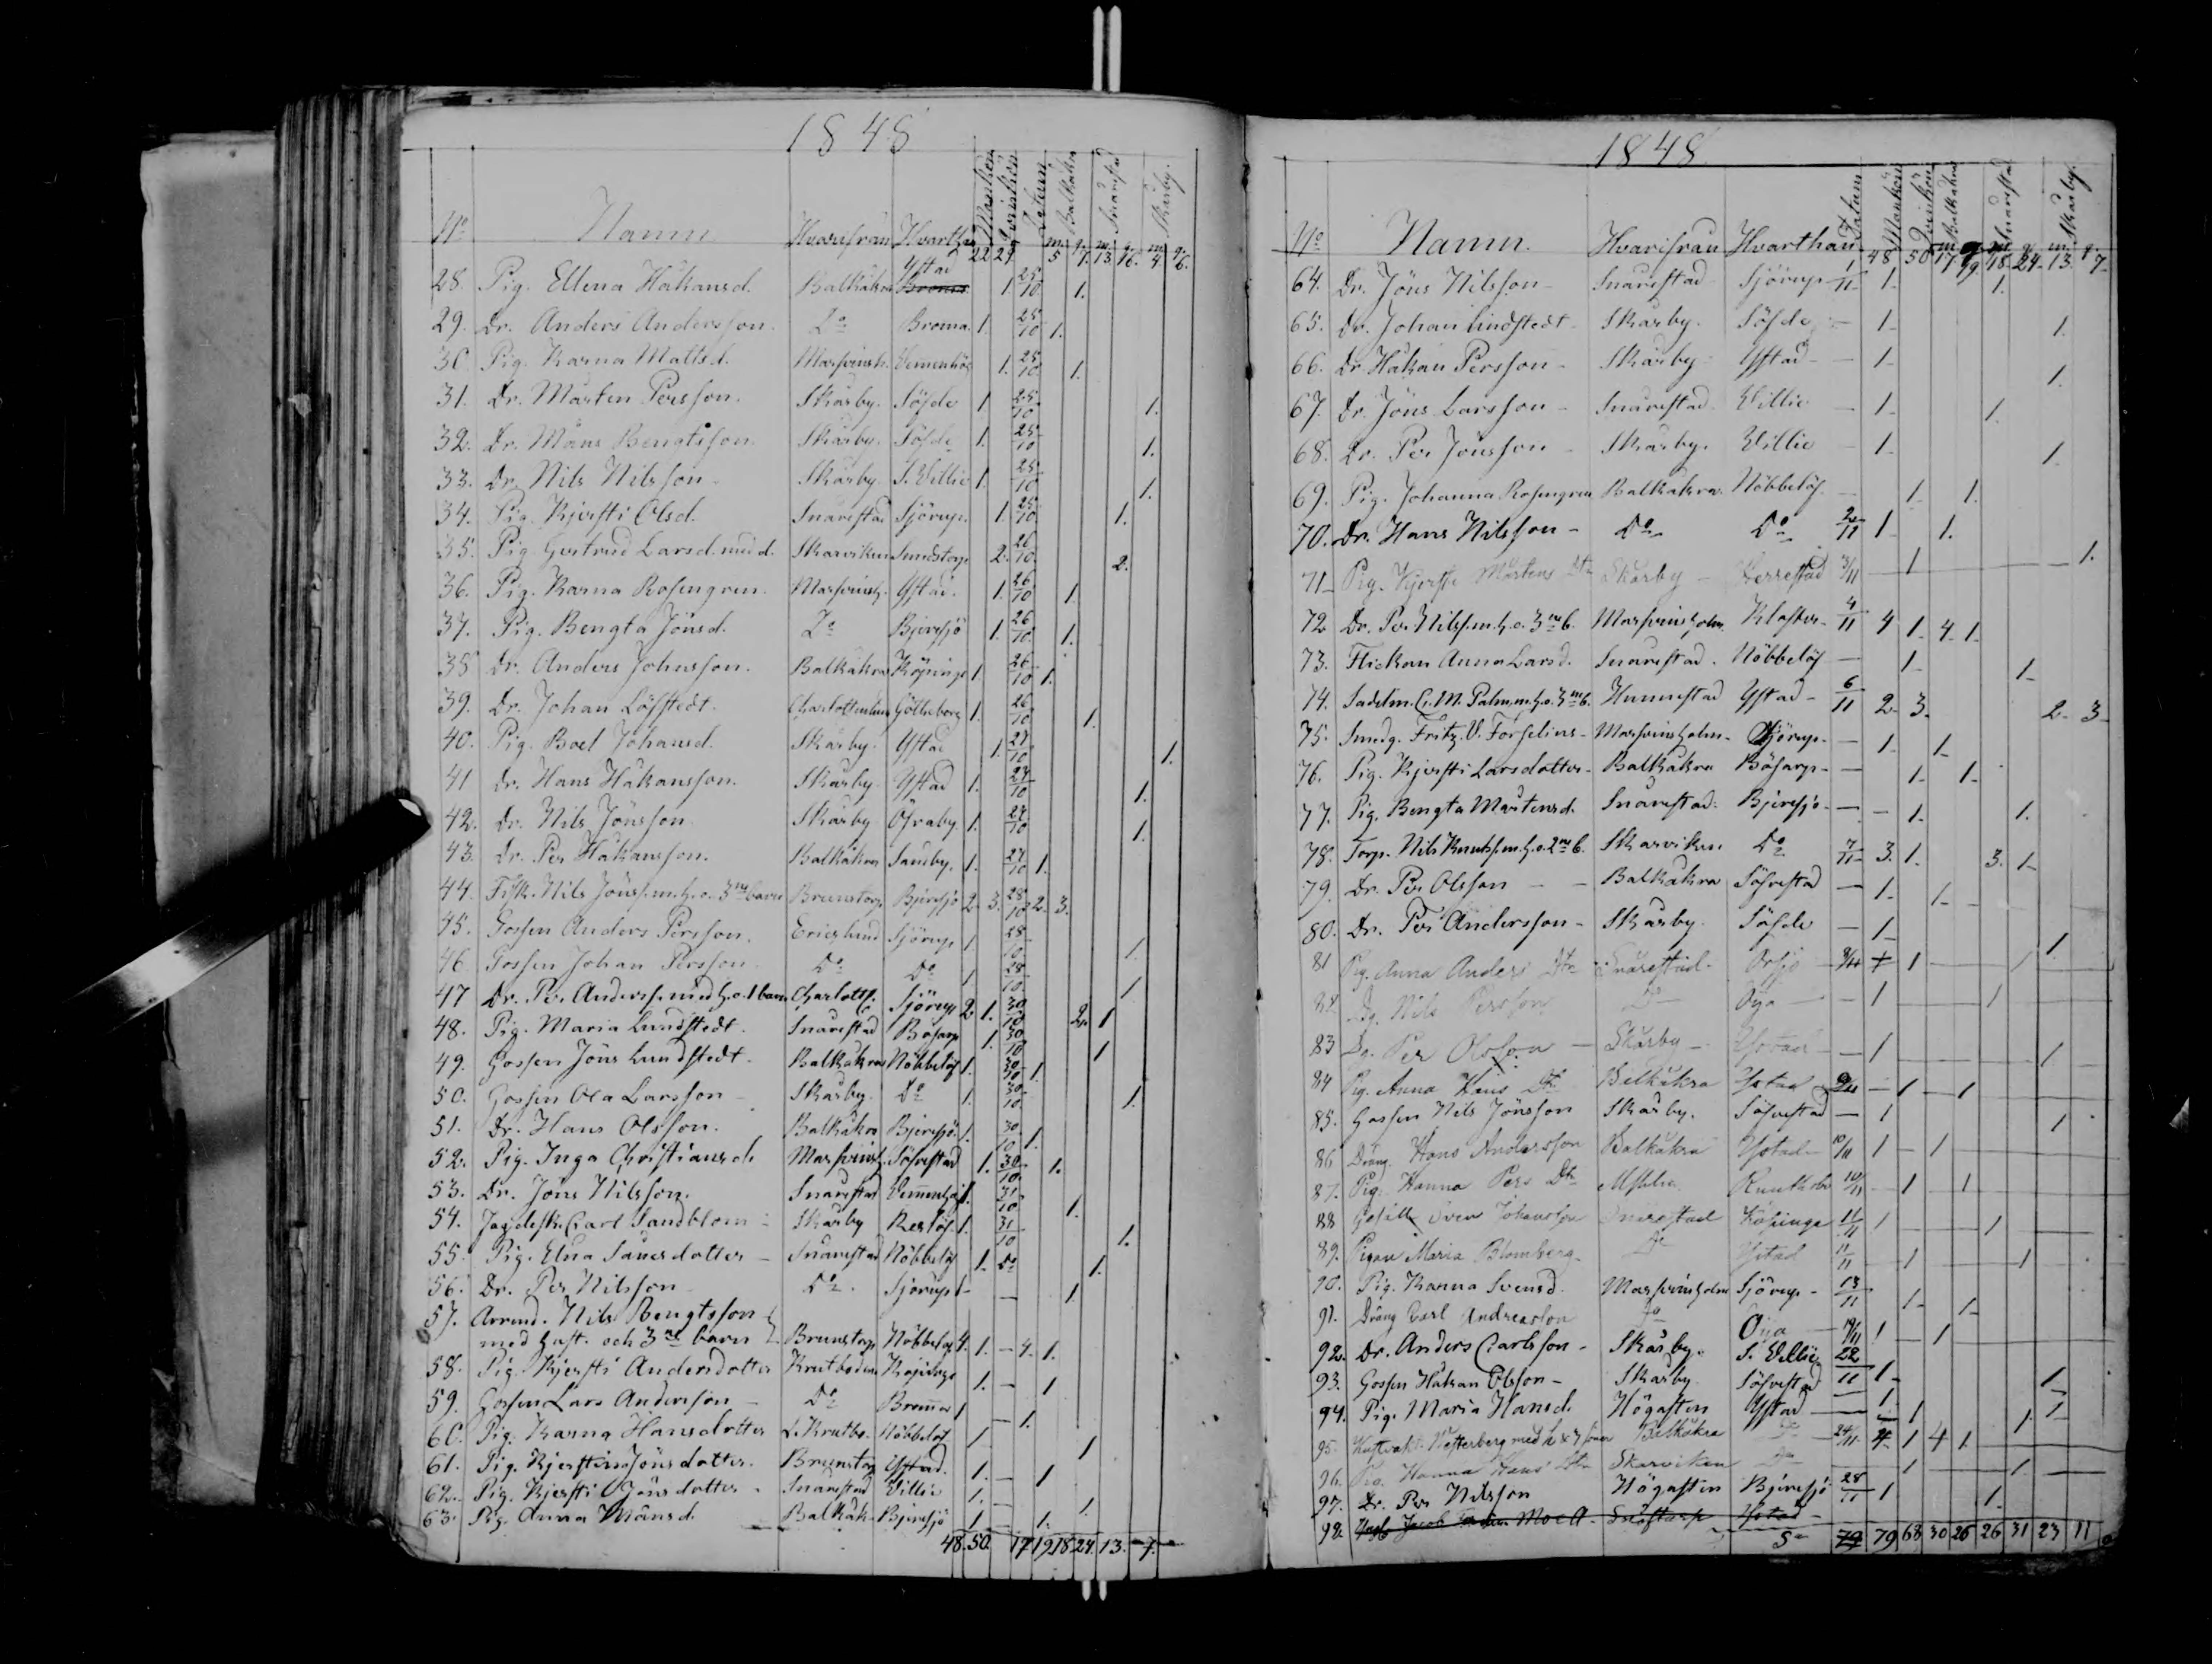 1848
No Namn Hvarifrån Hvarthän Mankön Qvinkön Datum Balkåkra Snårestad Skårby.
22 27 m. 5 q. 7. m. 13. q. 16. m. 4 q. 6.
Ystad
28. Pig. Ellena Håkansd. Balkåkra Broma 1. 25/10 1.
29. Dr. Anders Andersson. Do Broma. 1. 25/10 1.
30. Pig. Karna Mattsd. Marsvinsh. Vemenhög 1. 25/10 1.
31. Dr. Mårten Persson. Skårby. Söfde 1. 25/10 1.
32. Dr. Måns Bengtsson. Skårby. Söfde 1. 25/10 1.
33. Dr. Nils Nilsson. Skårby S. Villie 1. 25/10 1.
34. Pig. Kjersti Olsd. Snårestad Sjörup. 1. 25/10 1.
35. Pig. Gertrud Larsd. med d. Skarviken 2. 26/10 2.
36. Pig. Karna Rosengren. Marsvinsh. Ystad. 1. 26/10 1.
37. Pig. Bengta Jönsd. Do Bjeresjö 1. 26/10 1.
38 Dr. Anders Johnsson. Balkåkra Köpinge 1. 26/10 1.
39. Dr. Johan Löfstedt. Charlottenlund Götheborg 1. 26/10 1.
40. Pig. Boel Johansd. Skårby. Ystad 1. 27/10 1.
41 Dr. Hans Håkansson. Skårby Ystad 1. 27/10 1.
42. Dr. Nils Jönsson Skårby Öfraby. 1. 27/10 1.
43. Dr. Per Håkansson. Balkåkra Sandby. 1. 27/10 1.
44. Fisk. Nils Jönss. m. h. o. 3ne barn Brunstorp Bjeresjö 2. 3. 28/10 2. 3.
45. Gossen Anders Persson. Ericslund Sjörup 1 28/10 1.
46 Gossen Johan Persson Do Do 1 28/10 1.
47 Dr. Per Anderss. med h. o. 1 barn Charlottl. Sjörup 2 1. 30/10 2. 1
48. Pig. Maria Lundstedt. Snårestad Bösarp 1. 30/10 1
49. Gossen Jöns Lundstedt. Balkåkra Nöbbelöf 1. 30/10 1.
50. Gossen Ola Larsson Skårby. Do 1. 30/10 1.
51. Dr. Hans Olsson. Balkåkra Bjeresjö 1. 30/10 1.
52. Pig. Inga Christiansd. Marsvinsh. Söfvestad 1. 30/10 1.
53. Dr. Jöns Nilsson. Snårestad Vemmenhög 1. 31/10 1.
54. Jagdelsk. Carl Sandblom Skårby 1. 31/10 1.
55. Pig. Elna Sauesdotter Snårestad Nöbbelöf 1. Do 1.
56. Dr. Per Nilsson Do. Sjörup 1 — 1
57. Arrend. Nils Bengtsson
med hust. och 3ne barn Brunstorp Nöbbelöf 4. 1. — 4. 1.
58. Pig. Kjersti Andersdotter Krutboden Köpinge 1. — 1
59. Gossen Lars Andersson Do Broma 1 — 1.
60. Pig. Karna Hansdotter L. Krutbo. Nöbbelöf 1 1
61. Pig. Kjerstina Jönsdotter. Brunstorp Ystad. 1. — 1
62. Pig. Kjersti Jönsdotter. Snårestad Villie 1. — 1
63. Pig. Anna Månsd. Balkåk. Bjeresjö 1 1.
48. 50. 17 19 18 24. 13. 7.
1848
No Namn. Hvarifrån Hvarthän Datum Mankön Qvinkön Balkåkra Snårestad Skårby.
48 50 17 19 18. 24. 13. 7.
64. Dr. Jöns Nilsson Snårestad Sjörup 1/11 1. 1.
65. Dr. Johan Lindstedt Skårby. Söfde — 1 1.
66. Dr. Håkan Persson Skårby Ystad — 1 1.
67. Dr. Jöns Larsson Snårestad Villie — 1 1.
68. Dr. Per Jönsson Skårby. Villie — 1 1.
69. Pig. Johanna Rosengren Balkåkra Nöbbelöf. — 1 1.
70. Dr. Hans Nilsson Do Do 2/11 1 1.
71 Pig. Kjersti Mårtens Dtr Skårby Herrestad 3/11 1 1.
72 Dr. Per Nilss. m. h. o. 3ne b. Marsvinsholm Kloster 4/11 4 1 4 1
73. Flickan Anna Larsd. Snårestad. Nöbbelöf — 1 1
74. Sadelm. C. M. Palm m. h. o. 3ne b. Hunnestad Ystad 6/11 2. 3. 2. 3
75. Smidg. Fritz V. Forselius Marsvinsholm Sjörup — 1 1
76. Pig. Kjersti Larsdotter Balkåkra Bösarp — 1 1
77. Pig. Bengta Mårtensd. Snårestad. Bjeresjö — 1. 1.
78. Torp. Nils Knutss. m. h. o. 2ne b. Skarviken Do 7/11 3. 1. 3. 1
79. Dr. Per Olsson Balkåkra Söfvestad — 1 1
80. Dr. Per Andersson Skårby. Söfde — 1 1
81 Pig. Anna Anders Dtr Snårestad Örsjö 8/11 1 1
82 Dg. Nils Persson Do Öja — 1 1
83 Dg. Per Olsson Skårby Ystad — 1 1
84 Pig. Anna Hans Dtr Balkåkra Ystad 9/11 1 1
85. Gossen Nils Jönsson Skårby. Söfvestad — 1 1
86 Dräng Hans Andersson Balkåkra Ystad 10/11 1 1
87. Pig. Hanna Pers Dtr 10/11 1 1
88 Sven Johansson Snårestad Köpinge 11/11 1 1
89. Pigan Maria Blomberg Do Ystad 11/11 1 1
90. Pig. Karna Svensd. Marsvinsholm Sjörup 13/11 1 1
91. Dräng Carl Andreasson Do Öija 14/11 1 1
92. Dr. Anders Carlsson Skårby. S. Villie 22/11 1 1
93. Gossen Håkan Olsson Skårby Söfvestad — 1 1
94. Pig. Maria Hansd. Högasten Ystad — 1 1
95. Kustvakt. Westerberg med h & 3 barn Balkåkra Do 24/11 4 1 4 1
96. Pig. Hanna Hans Dtr Skarviken Do 1 1
97. Dr. Per Nilsson Högasten Bjeresjö 28/11 1 1.
98. Jacob Snöstorp Ystad
Sa 79 79 68 30 26 26 31 23 11